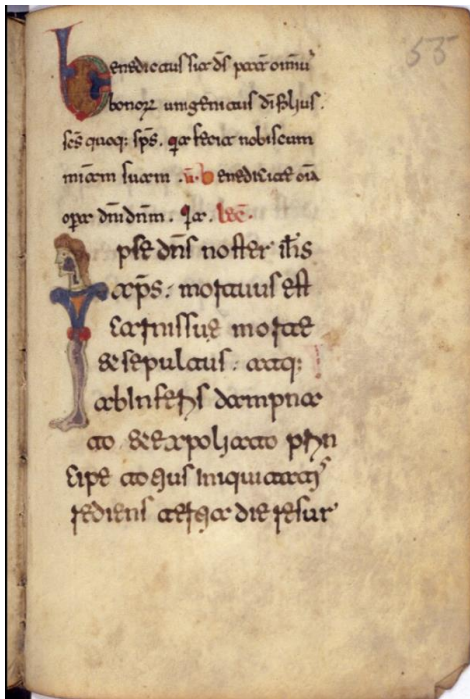 Benedictus sit ds̄ pater omniū
bonorꝝ unigenitus dī filius.
sc̄s quoq; sp̄s. qa fecit nobiscum
mīam suam. v̄. Benedicite oīa
opera dn̄i dn̄m. qa. lec̄.
Ipse dn̄s noster ih̄s
xp̄s: mortuus est
carnis sue morte
& sepultus: atq;
ab inferis dampna
to. & expoliato prin
cipe totius iniquitatis
rediens tertia die resur
55